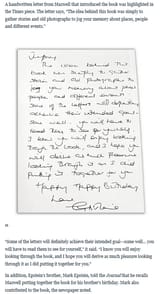 A handwritten letter from Maxwell that introduced the book was highlighted in
the Times piece. The letter says, "The idea behind this book was simply to
gather stories and old photographs to jog your memory about places, people
and different events."
Jeffrey
The idea behind this
book was simply to gather stories
and old photographs to
jog your memory about places
people and different events.
Some of the letters will definitely
achieve their intended goal
some well... you will have to
read them to see for yourself.
I know you will enjoy looking
through the book, and I hope you
will derive as much pleasure
looking through it as I did
putting it together for you
Happy Happy Birthday
Love
"Some of the letters will definitely achieve their intended goal—some well… you
will have to read them to see for yourself," it said. "I know you will enjoy
looking through the book, and I hope you will derive as much pleasure looking
through it as I did putting it together for you."
In addition, Epstein's brother, Mark Epstein, told the Journal that he recalls
Maxwell putting together the book for his brother's birthday. Mark also
contributed to the book, the newspaper noted.